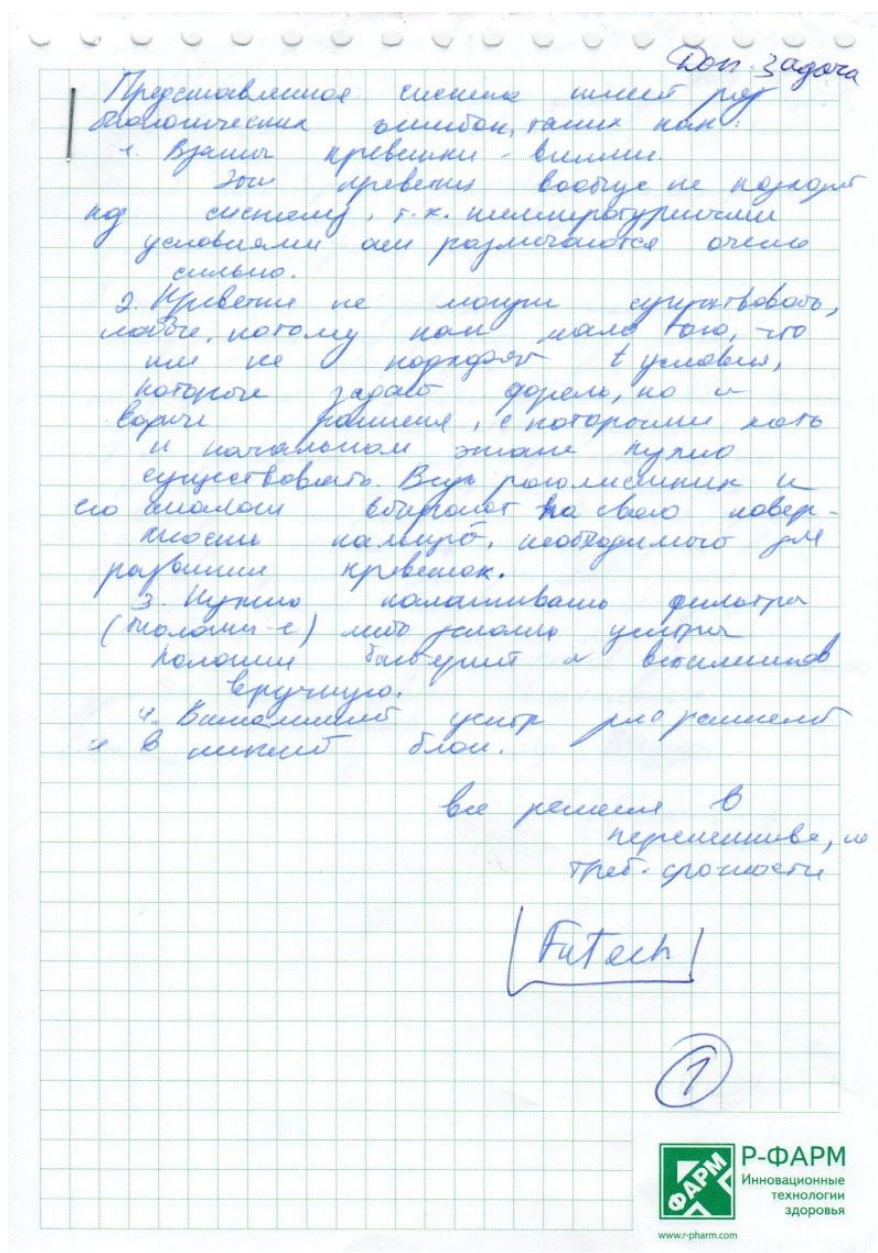 Доп. задача
Представленное система имеет ряд
биологических ошибок, таких как:
1. Взяты креветки - вилли.
Эти креветки вообще не подходят
под систему, т.к. температурными
условиями они различаются очень
сильно.
2. Креветки не могут существовать,
потому как мало того, что
им не подходят t условия,
которые задаёт форель, но и
растения, с которыми хоть
и начальном этапе нужно
существовать. Ведь роголистник и
его аналоги вбирают на свою поверх-
ность кальций, необходимого для
развития креветок.
3. Нужно налаживать фильтры
(биологич-е) либо
бактерий и витаминов
вручную.
4. растений
и в нижний блок.
все решения в
переписиве, но
треб. срочности
FuTech
1
ФАРМ
Р-ФАРМ
Инновационные
технологии
здоровья
www.r-pharm.com